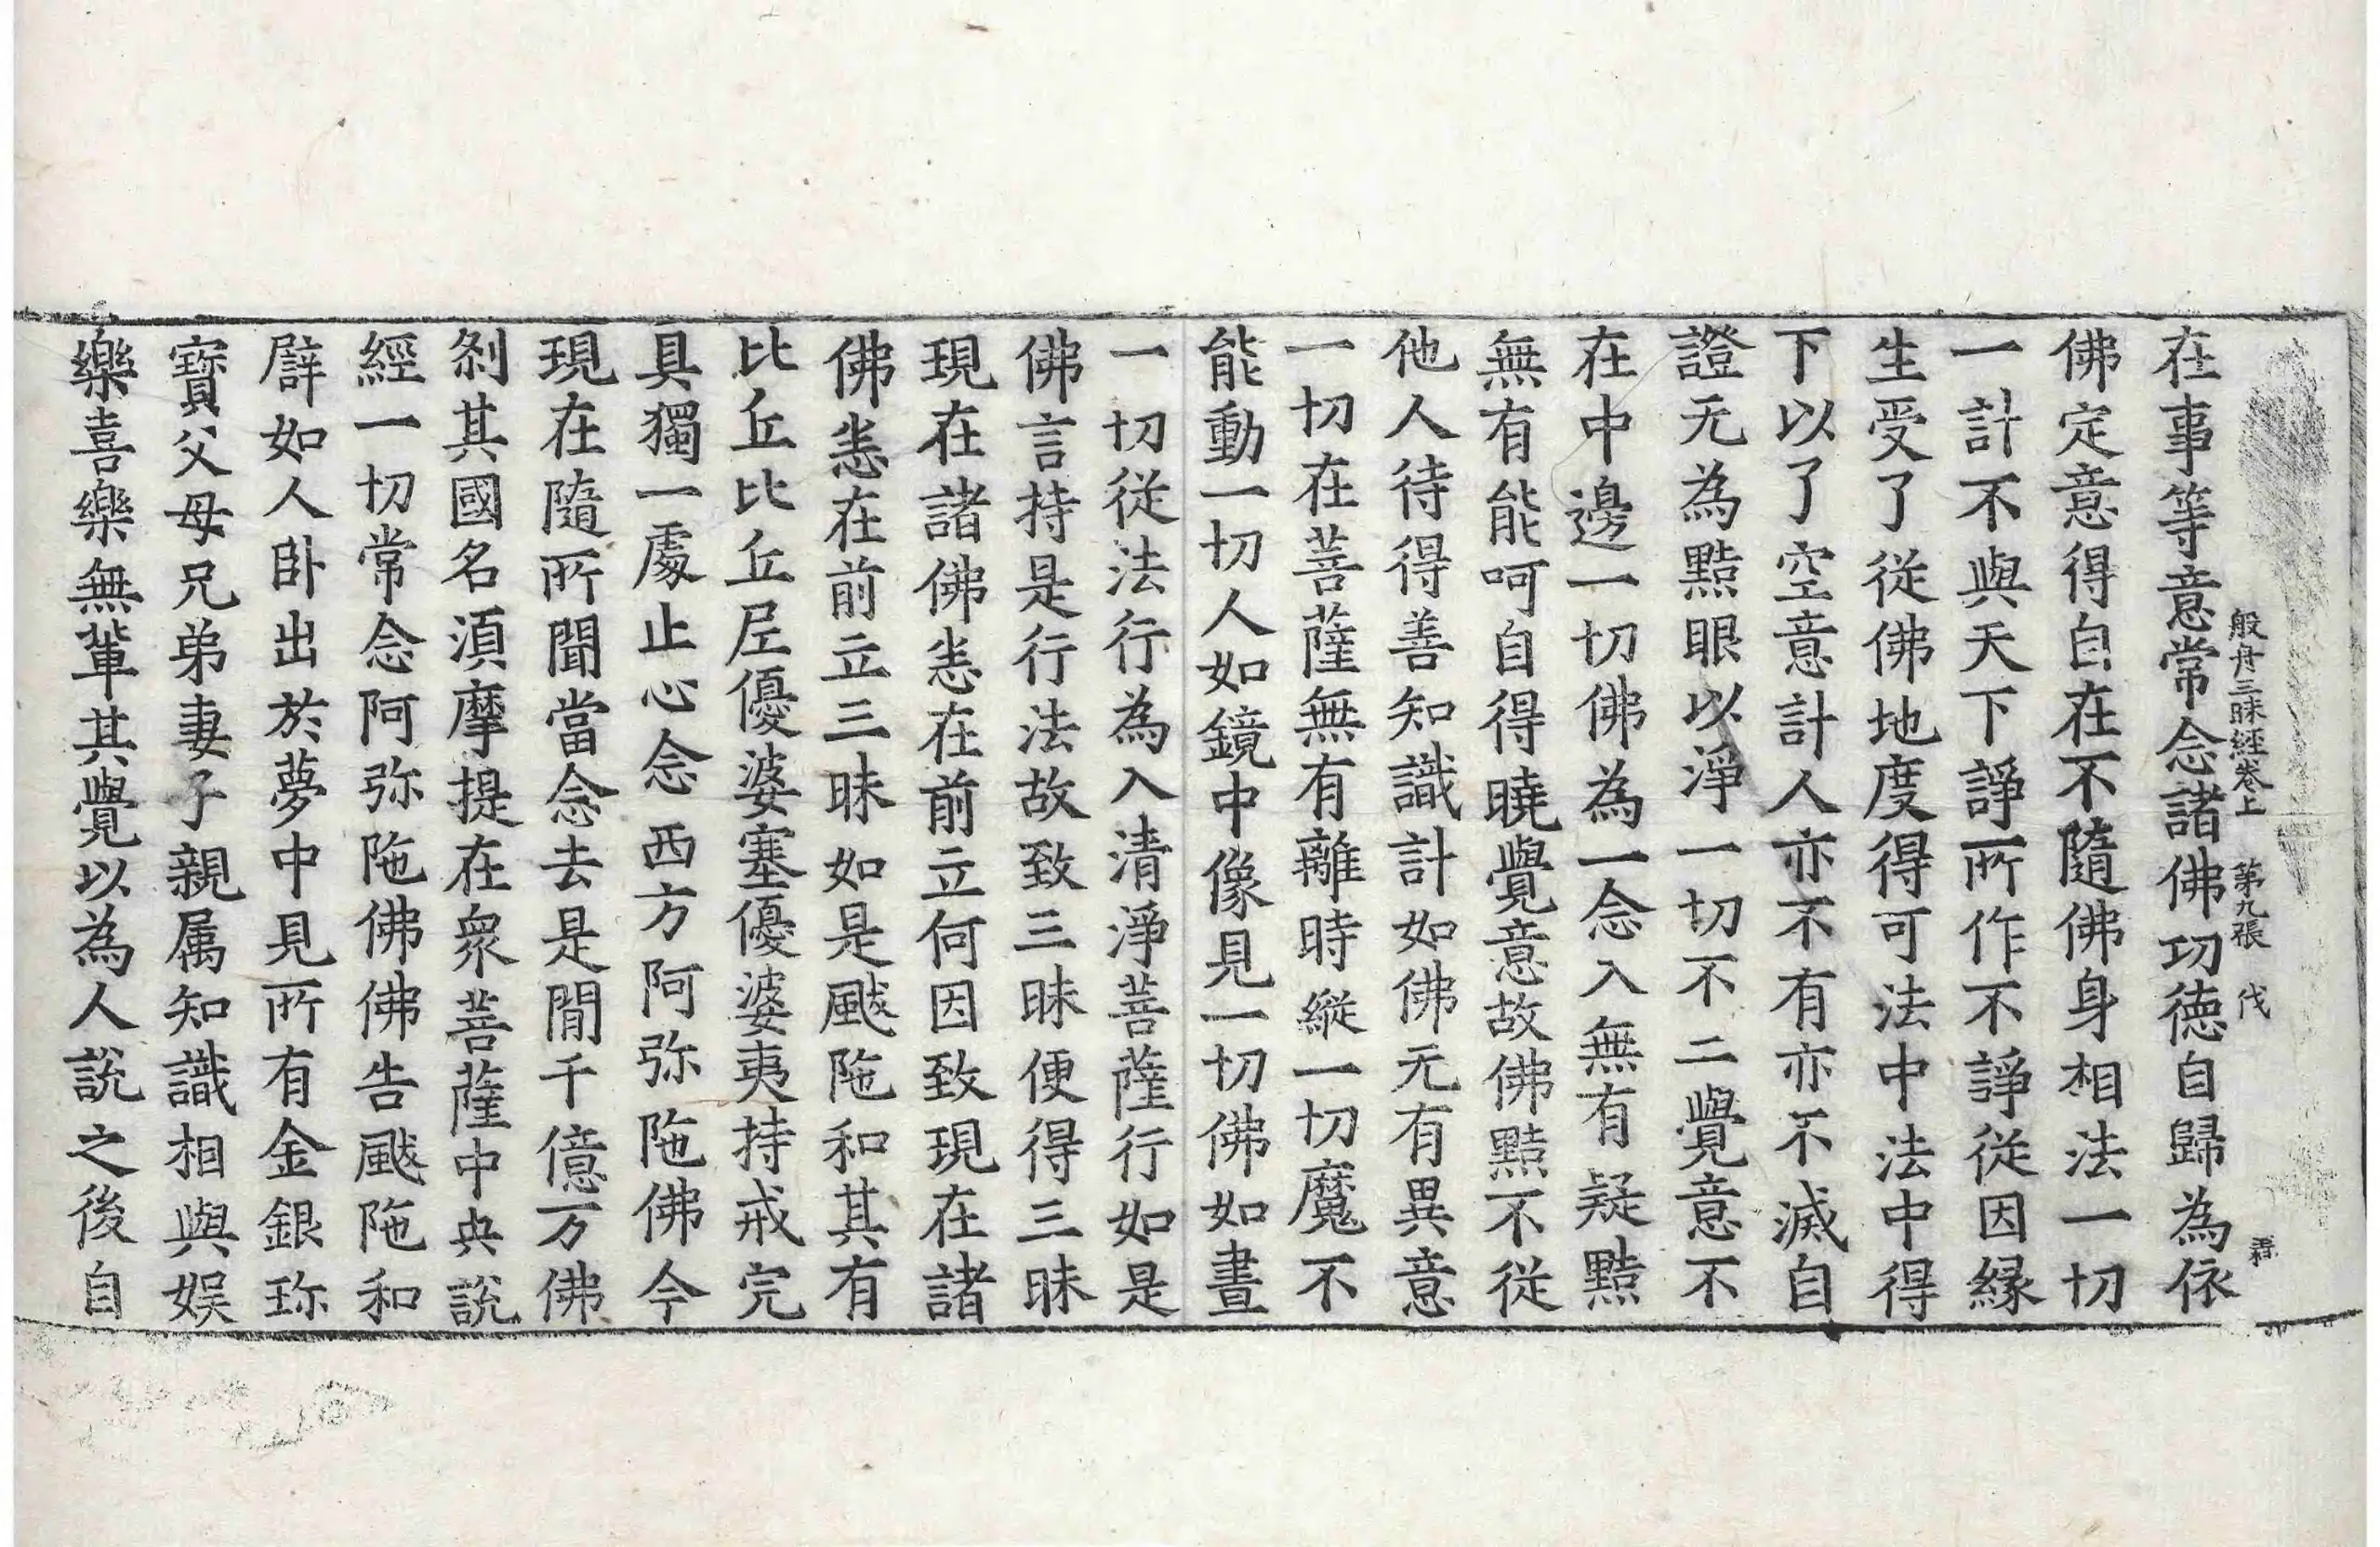 般舟三昧経卷上　第九張　伐
在事等意常念諸佛功徳自歸為依
佛定意得自在不隨佛身相法一切
一計不與天下諍所作不諍従因縁
生受了従佛地度得可法中法中得
下以了空意計人亦不有亦不滅自
證无為黠眼以淨一切不二覺意不
在中邊一切佛為一念入無有疑黠
無有能呵自得曉覺意故佛黠不従
他人待得善知識計如佛无有異意
一切在菩薩無有離時縦一切魔不
能動一切人如鏡中像見一切佛如畫
一切従法行為入清淨菩薩行如是
佛言持是行法故致三昧便得三昧
現在諸佛悉在前立何因致現在諸
佛悉在前立三昧如是颰陁和其有
比丘比丘尼優婆塞優婆夷持戒完
具獨一處止心念西方阿弥陁佛今
現在隨所聞當念去是閒千億万佛
刹其國名湏摩提在衆菩薩中央說
經一切常念阿弥陁佛佛告颰陁和
辟如人卧出於夢中見所有金銀珎
寶父母兄弟妻子親属知識相與娱
樂喜樂無輩其覺以為人說之後自